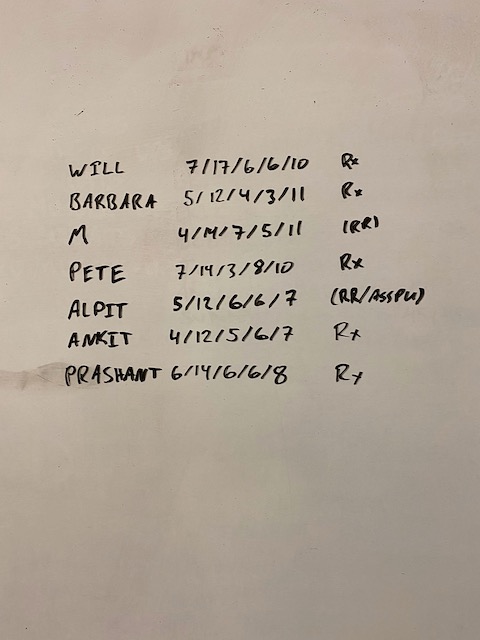 WILL 7/17/6/6/10 Rx
BARBARA 5/12/4/3/11 Rx
M 4/14/7/5/11 (RR)
PETE 7/14/3/8/10 Rx
ALPIT 5/12/6/6/7 (RR/ASSPU)
ANKIT 4/12/5/6/7 Rx
PRASHANT 6/14/6/6/8 Rx